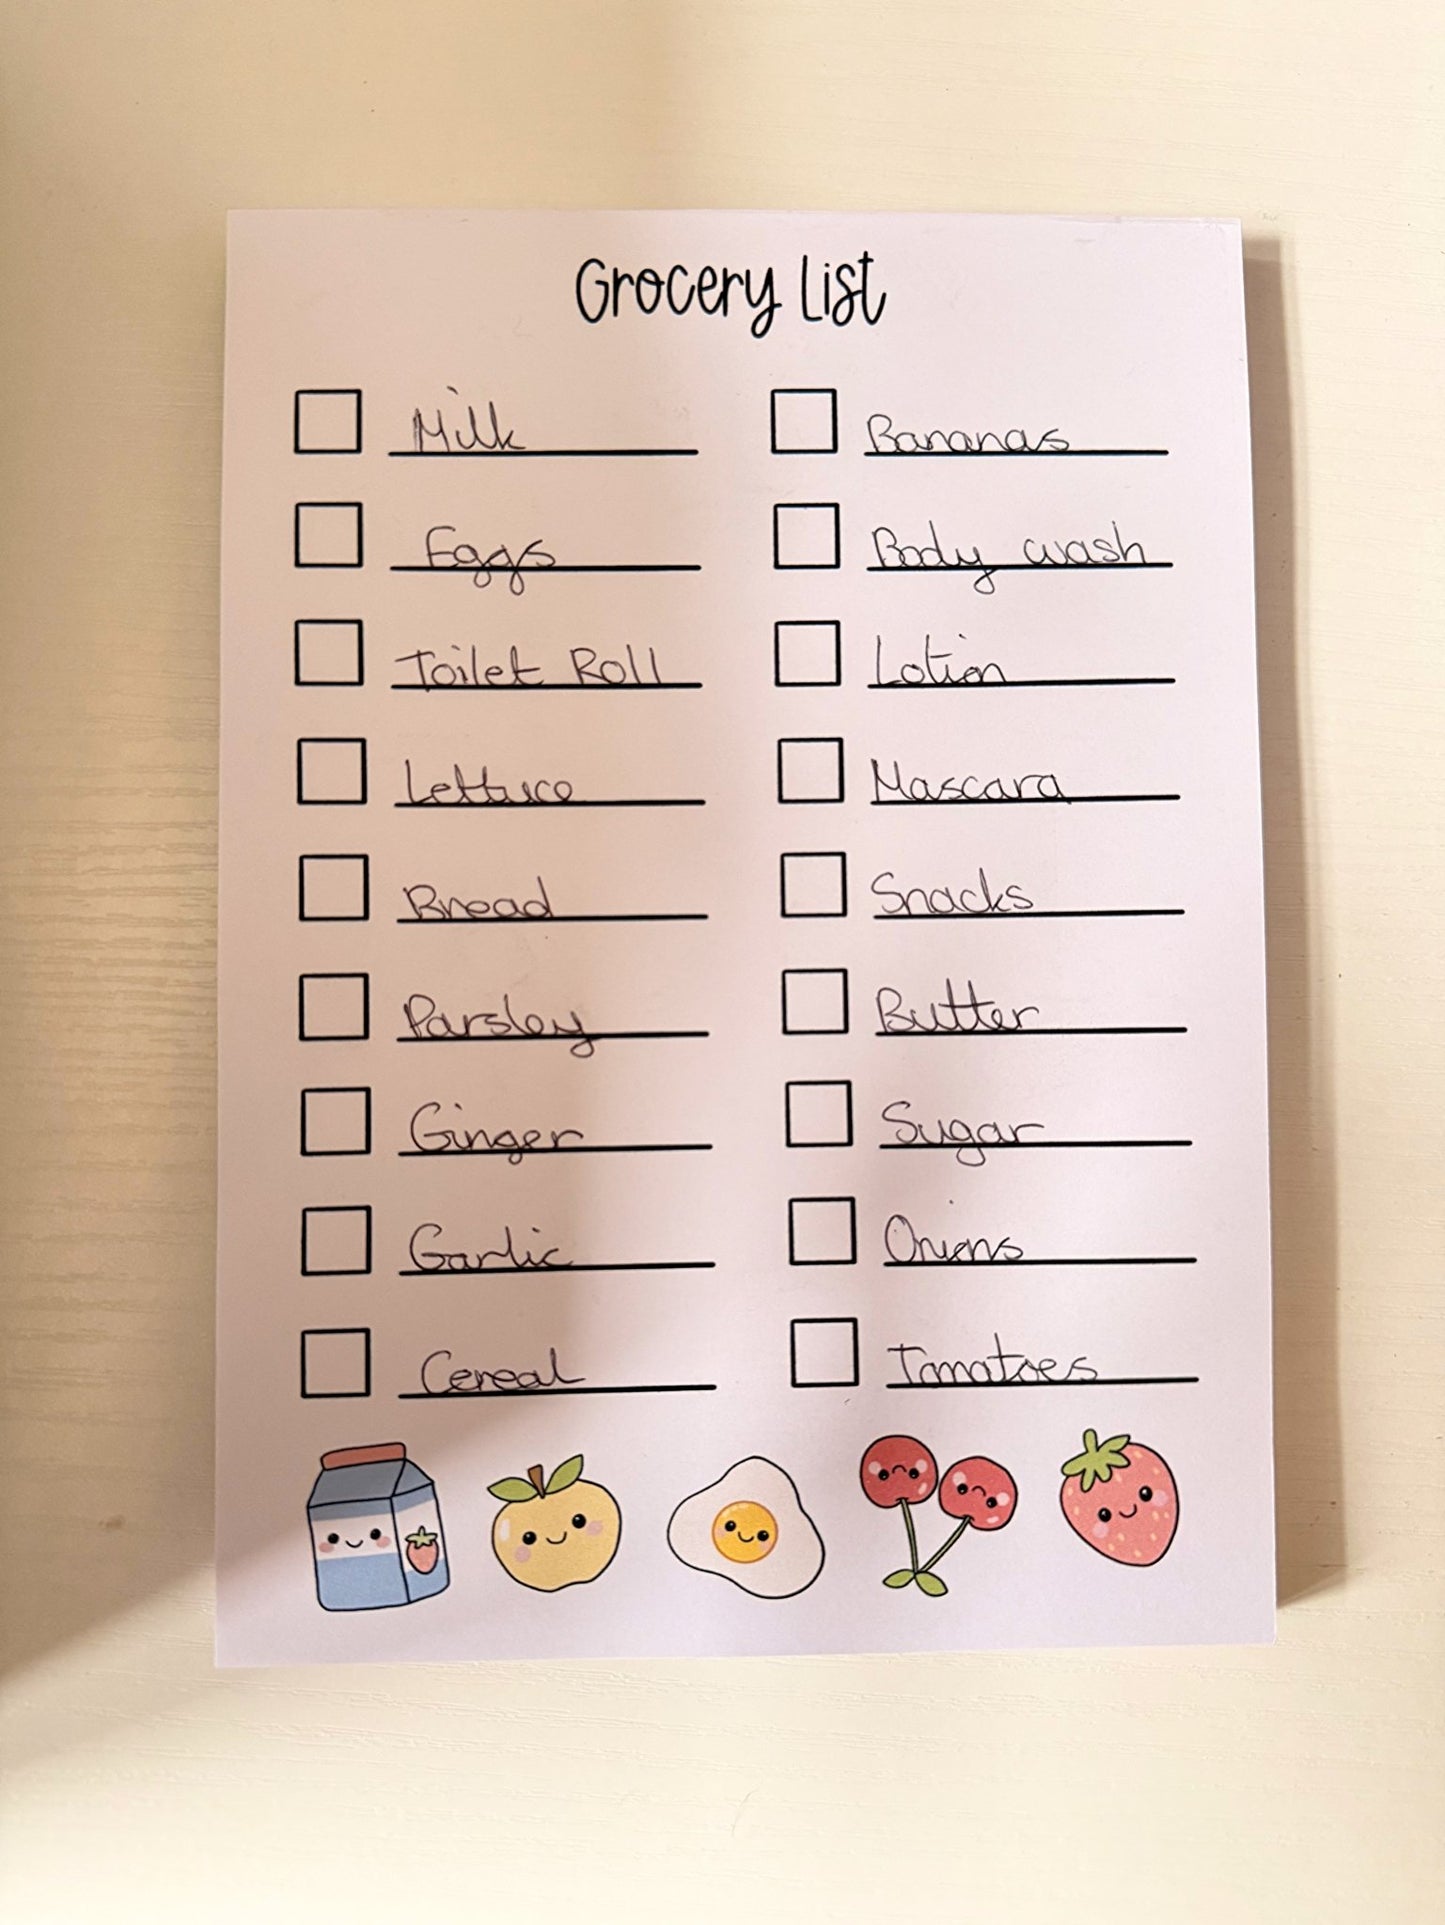 Grocery List
Milk
Eggs
Toilet Roll
Lettuce
Bread
Parsley
Ginger
Garlic
Cereal
Bananas
Body wash
Lotion
Mascara
Snacks
Butter
Sugar
Onions
Tomatoes